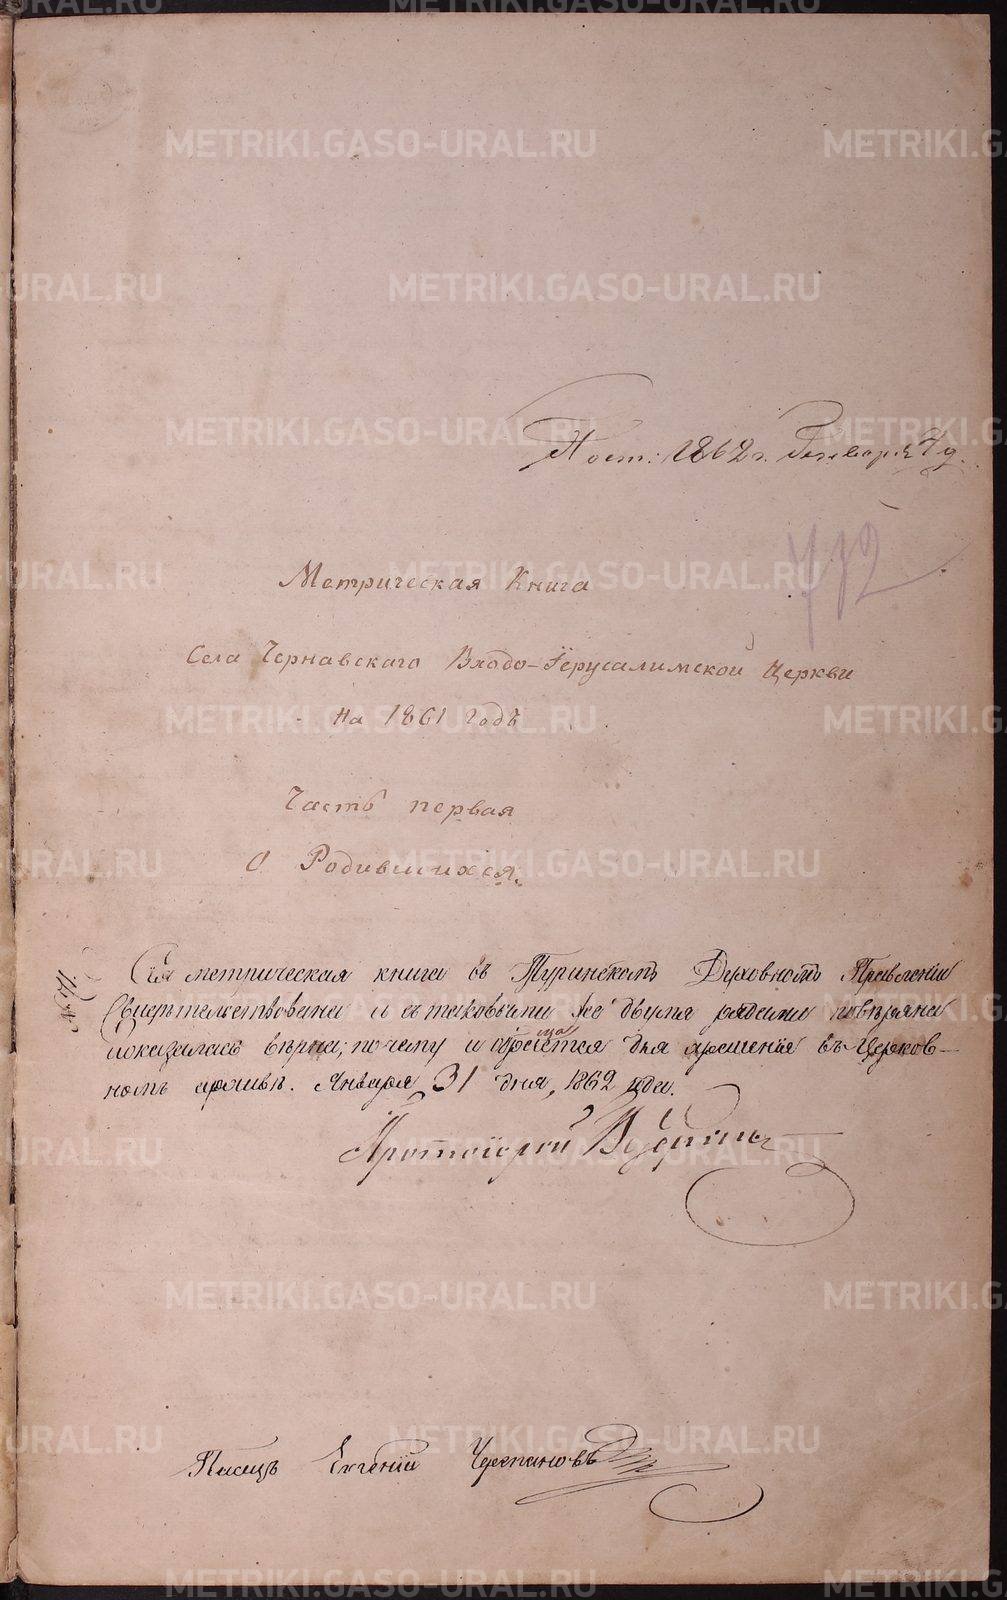 Пост: 1862 г. Генваря 4 д.
Метрическая Книга
Села Чернавскаго Входо-Іерусалимской Церкви
на 1861 годъ
Часть первая
О Родившихся.
Сія метрическая книга въ Туринскомъ Духовномъ Правленіи
свидѣтельствована и съ таковыми же двумя повѣряна
показалась вѣрна; почему и для храненія въ Церков-
номъ архивѣ. Января 31 дня, 1862 года.
Протоіерей
Писецъ Евгеній Черепановъ
METRIKI.GASO-URAL.RU